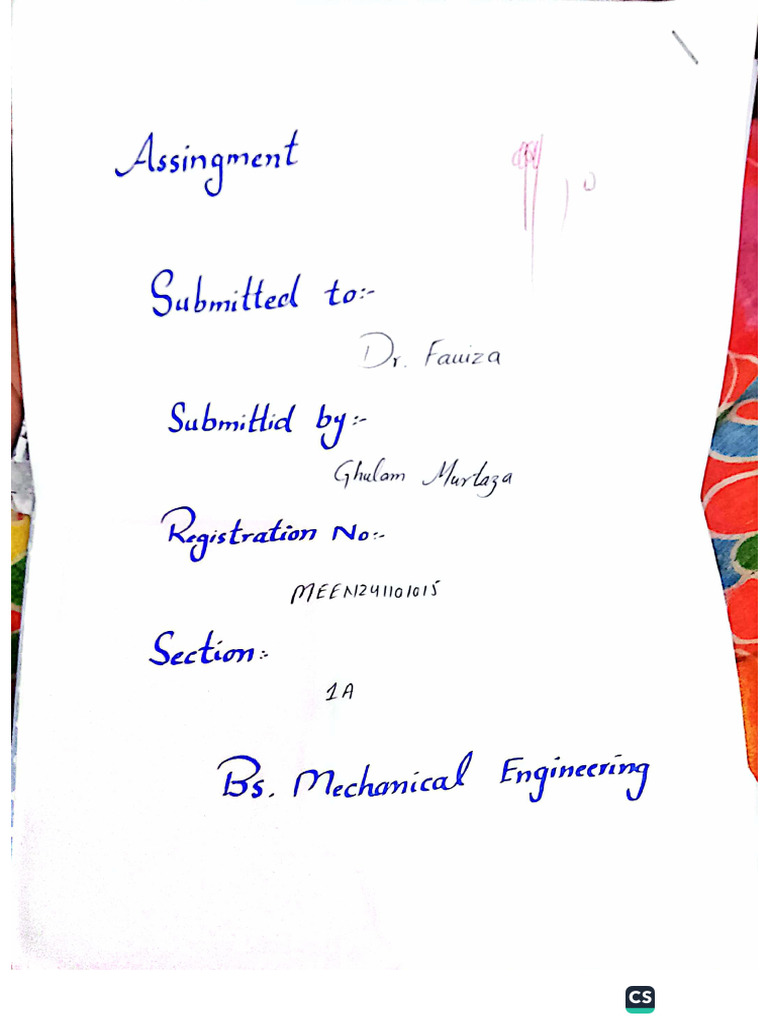 Assingment
Submitted to:-
Dr. Fauiza
Submittid by:-
Ghulam Murtaza
Registration No:-
MEEN241101015
Section:-
1A
Bs. Mechanical Engineering
CS